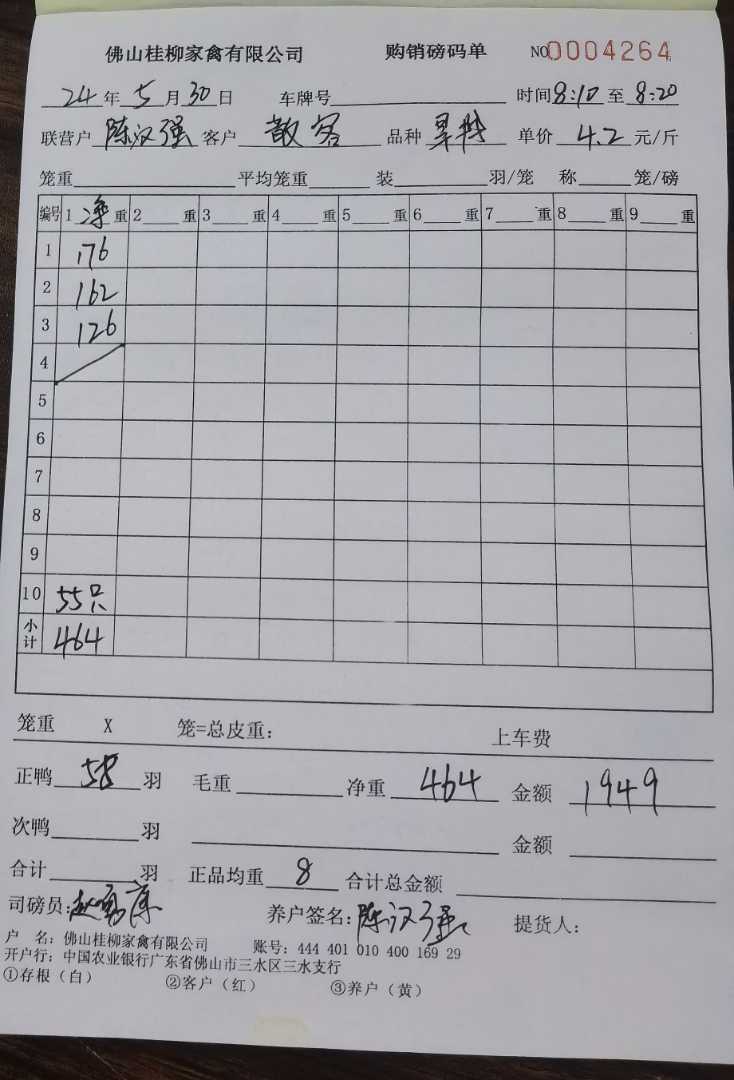 佛山桂柳家禽有限公司 购销磅码单 NO 0004264
24年5月30日 车牌号 时间8:10至8:20
联营户 陈汉强 客户 散客 品种 单价 4.2 元/斤
笼重 平均笼重 装 羽/笼 称 笼/磅
编号 1 净 重 2 重 3 重 4 重 5 重 6 重 7 重 8 重 9 重
1 176
2 162
3 126
4
5
6
7
8
9
10 55只
小计 464
笼重 X 笼=总皮重: 上车费
正鸭 58 羽 毛重 净重 464 金额 1949
次鸭 羽 金额
合计 羽 正品均重 8 合计总金额
司磅员: 养户签名: 陈汉强 提货人:
户 名: 佛山桂柳家禽有限公司 账号: 444 401 010 400 169 29
开户行: 中国农业银行广东省佛山市三水区三水支行
①存根(白) ②客户(红) ③养户(黄)